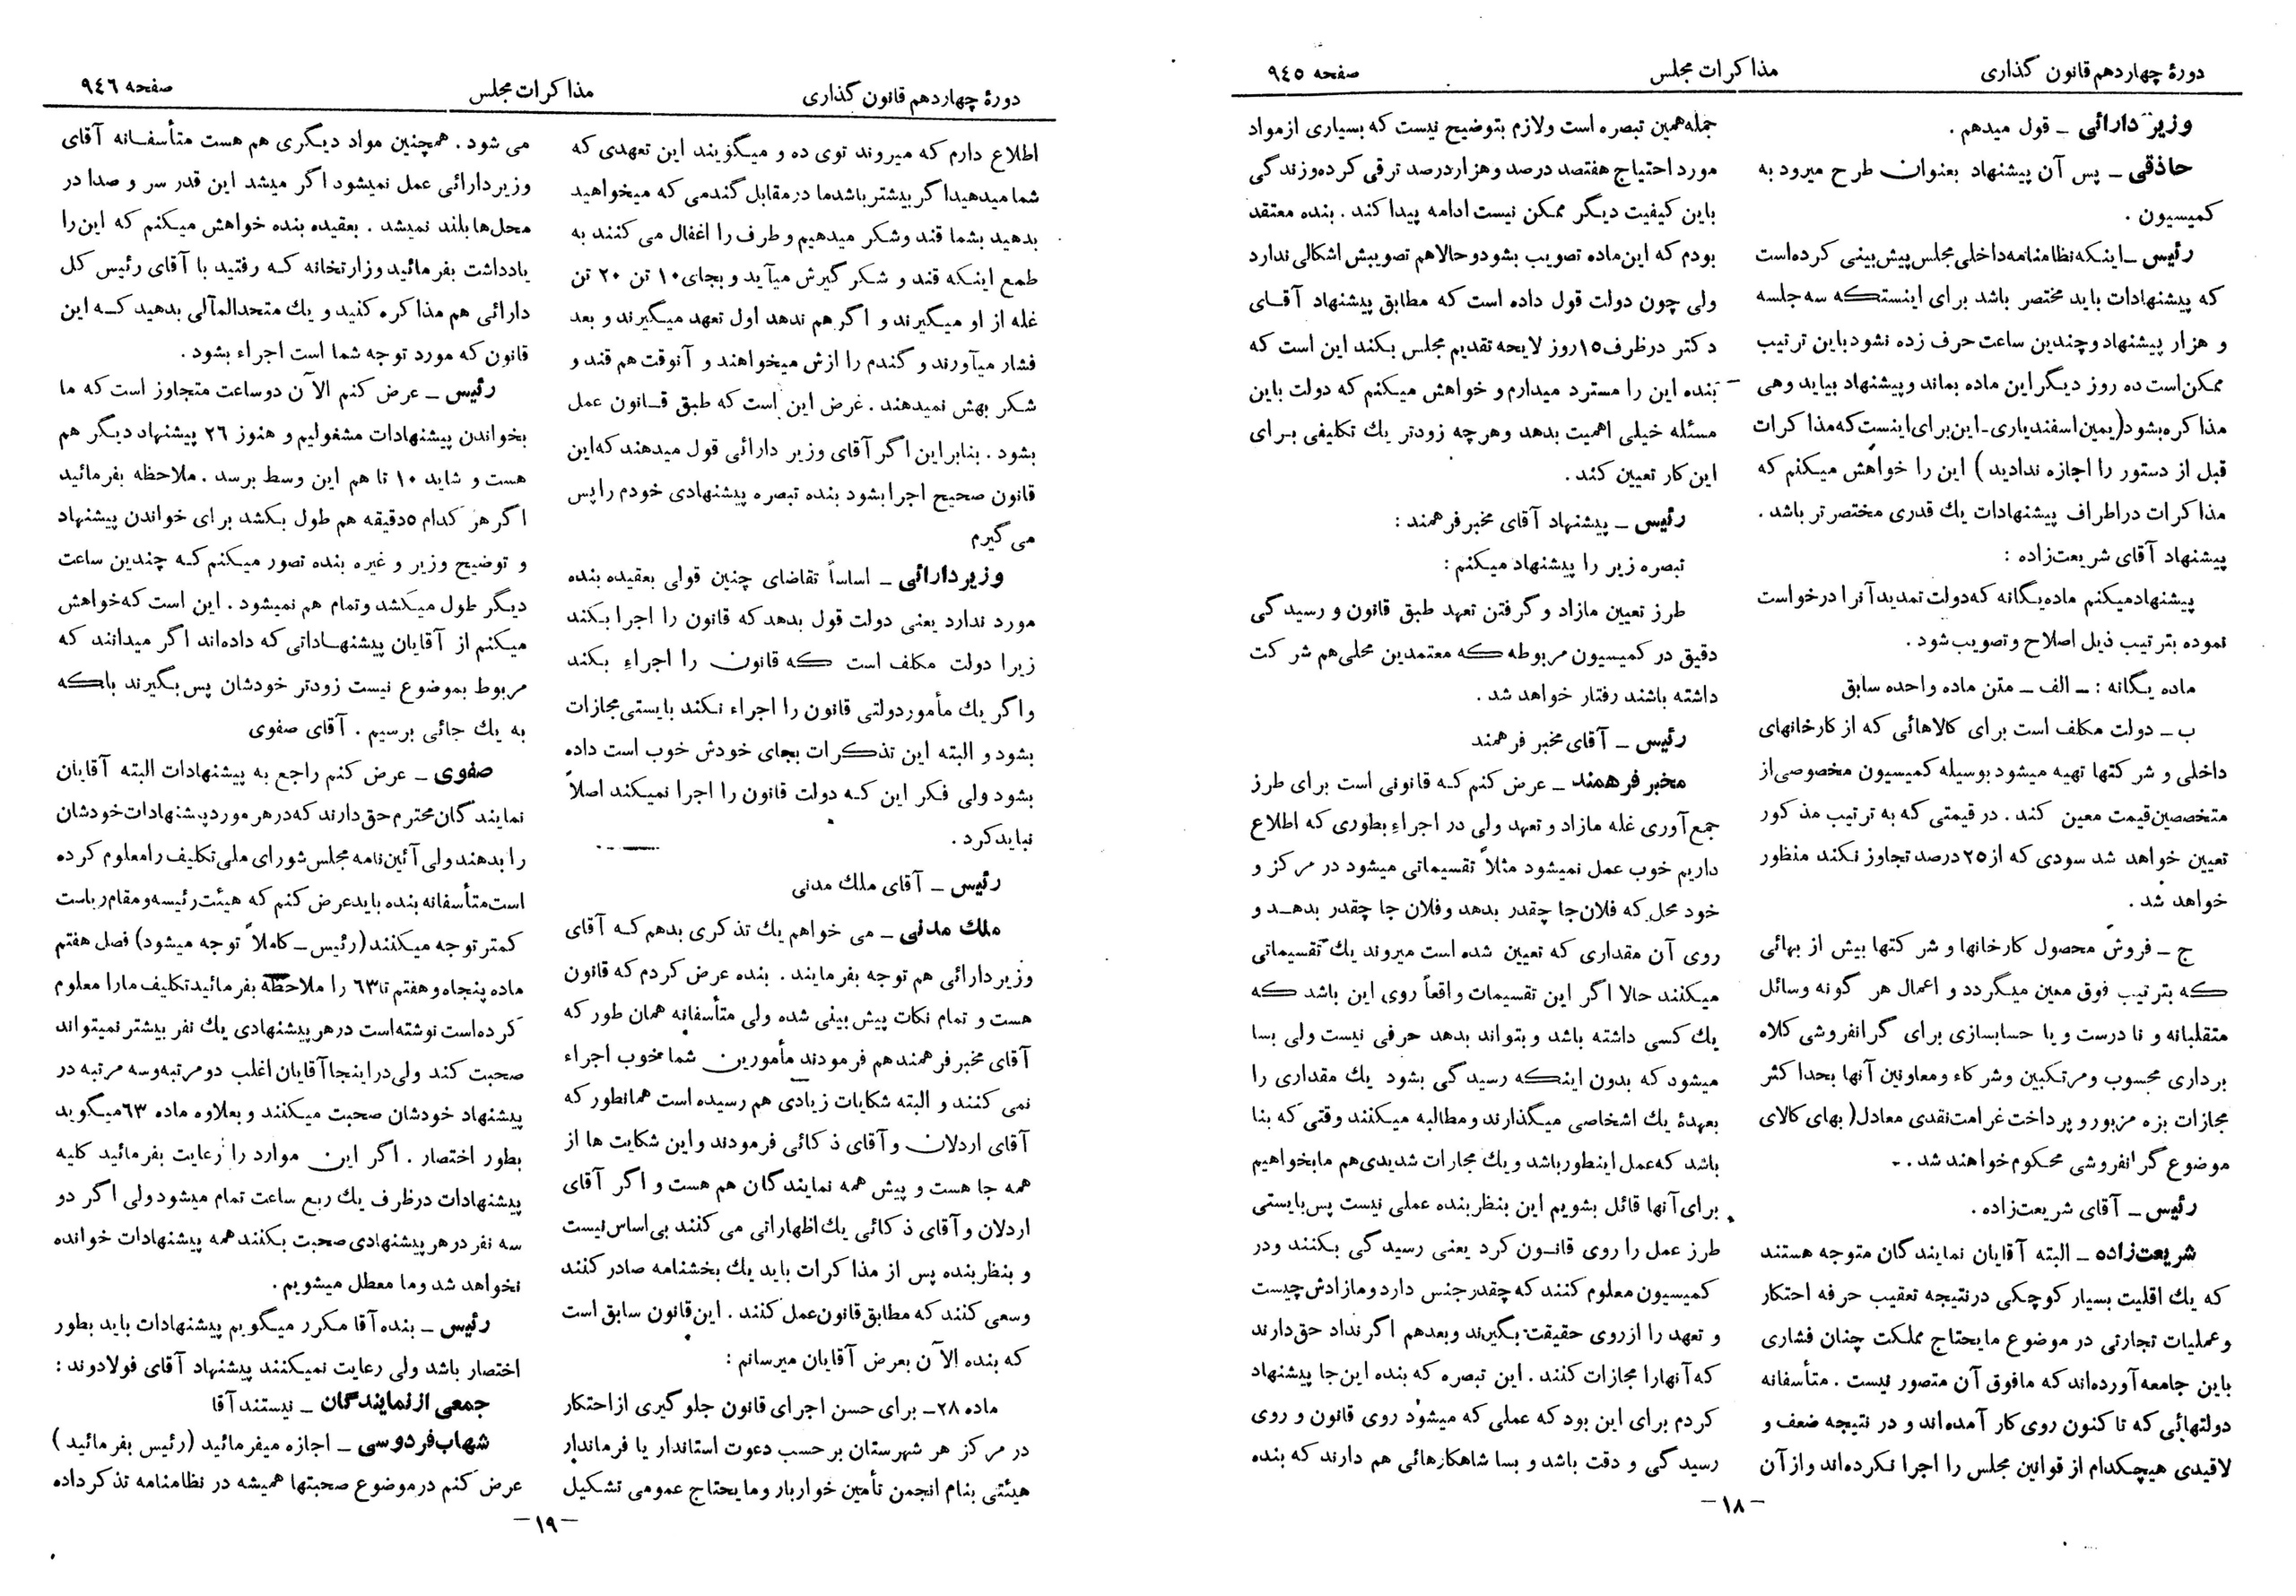 دورهٔ چهاردهم قانون گذاری
مذاکرات مجلس
صفحه ۹٤٥
وزیر دارائی ـ قول میدهم .
حاذقی ـ پس آن پیشنهاد بعنوان طرح میرود به
کمیسیون .
رئیس ـ اینکه نظامنامه داخلی مجلس پیش بینی کرده است
که پیشنهادات باید مختصر باشد برای اینستکه سه جلسه
و هزار پیشنهاد و چندین ساعت حرف زده نشود باین ترتیب
ممکن است ده روز دیگر این ماده بماند و پیشنهاد بیاید و هی
مذاکره بشود (یمین اسفندیاری ـ این برای اینست که مذاکرات
قبل از دستور را اجازه ندادید) این را خواهش میکنم که
مذاکرات در اطراف پیشنهادات یك قدری مختصر تر باشد .
پیشنهاد آقای شریعت‌زاده :
پیشنهاد میکنم ماده یگانه که دولت تمدید آنرا درخواست
نموده بترتیب ذیل اصلاح و تصویب شود .
ماده یگانه : ـ الف ـ متن ماده واحده سابق
ب ـ دولت مکلف است برای کالاهائی که از کارخانهای
داخلی و شرکتها تهیه میشود بوسیله کمیسیون مخصوصی از
متخصصین قیمت معین کند . در قیمتی که به ترتیب مذکور
تعیین خواهد شد سودی که از ۲٥ درصد تجاوز نکند منظور
خواهد شد .
ج ـ فروش محصول کارخانها و شرکتها بیش از بهائی
که بترتیب فوق معین میگردد و اعمال هر گونه وسائل
متقلبانه و نا درست و یا حسابسازی برای گرانفروشی کلاه
برداری محسوب و مرتکبین و شرکاء و معاونین آنها بحداکثر
مجازات بزه مزبور و پرداخت غرامت نقدی معادل (بهای کالای
موضوع گرانفروشی محکوم خواهند شد . ـ
رئیس ـ آقای شریعت‌زاده .
شریعت‌زاده ـ البته آقایان نمایندگان متوجه هستند
که یك اقلیت بسیار کوچکی در نتیجه تعقیب حرفه احتکار
و عملیات تجارتی در موضوع مایحتاج مملکت چنان فشاری
باین جامعه آورده‌اند که مافوق آن متصور نیست . متأسفانه
دولتهائی که تا کنون روی کار آمده‌اند و در نتیجه ضعف و
لاقیدی هیچکدام از قوانین مجلس را اجرا نکرده‌اند و از آن
جمله همین تبصره است و لازم بتوضیح نیست که بسیاری از مواد
مورد احتیاج هفتصد درصد و هزار درصد ترقی کرده و زندگی
باین کیفیت دیگر ممکن نیست ادامه پیدا کند . بنده معتقد
بودم که این ماده تصویب بشود و حالا هم تصویبش اشکالی ندارد
ولی چون دولت قول داده است که مطابق پیشنهاد آقـای
دکتر در ظرف ۱٥ روز لایحه تقدیم مجلس بکند این است که
بنده این را مسترد میدارم و خواهش میکنم که دولت باین
مسئله خیلی اهمیت بدهد و هر چه زودتر یك تکلیفی بـرای
این کار تعیین کند .
رئیس ـ پیشنهاد آقای مخبر فرهمند :
تبصره زیر را پیشنهاد میکنم :
طرز تعیین مازاد و گرفتن تعهد طبق قانون و رسیدگی
دقیق در کمیسیون مربوطه که معتمدین محلی هم شرکت
داشته باشند رفتار خواهد شد .
رئیس ـ آقای مخبر فرهمند
مخبر فرهمند ـ عرض کنم کـه قانونی است برای طرز
جمع آوری غله مازاد و تعهد ولی در اجراء بطوری که اطلاع
داریم خوب عمل نمیشود مثلاً تقسیماتی میشود در مرکز و
خود محل که فلان جا چقدر بدهد و فلان جا چقدر بدهـد و
روی آن مقداری که تعیین شده است میروند یك تقسیماتی
میکنند حالا اگر این تقسیمات واقعاً روی این باشد که
یك کسی داشته باشد و بتواند بدهد حرفی نیست ولی بسا
میشود که بدون اینکه رسیدگی بشود یك مقداری را
بعهدهٔ یك اشخاصی میگذارند و مطالبه میکنند وقتی که بنا
باشد که عمل اینطور باشد و یك مجارات شدیدی هم ما بخواهیم
برای آنها قائل بشویم این بنظر بنده عملی نیست پس بایستی
طرز عمل را روی قانـون کرد یعنی رسیدگی بکنند و در
کمیسیون معلوم کنند که چقدر جنس دارد و مازادش چیست
و تعهد را از روی حقیقت بگیرند و بعد هم اگر نداد حق دارند
که آنها را مجازات کنند . این تبصره که بنده این جا پیشنهاد
کردم برای این بود که عملی که میشود روی قانون و روی
رسیدگی و دقت باشد و بسا شاهکارهائی هم دارند که بنده
ـ ۱۸ ـ
دورهٔ چهاردهم قانون گذاری
مذاکرات مجلس
صفحه ۹٤٦
اطلاع دارم که میروند توی ده و میگویند این تعهدی که
شما میدهید اگر بیشتر باشد ما در مقابل گندمی که میخواهید
بدهید بشما قند و شکر میدهیم و طرف را اغفال می کنند به
طمع اینکه قند و شکر گیرش میآید و بجای ۱۰ تن ۲۰ تن
غله از او میگیرند و اگر هم ندهد اول تعهد میگیرند و بعد
فشار میآورند و گندم را ازش میخواهند و آنوقت هم قند و
شکر بهش نمیدهند . غرض این است که طبق قـانون عمل
بشود . بنابراین اگر آقای وزیر دارائی قول میدهند که این
قانون صحیح اجرا بشود بنده تبصره پیشنهادی خودم را پس
می گیرم
وزیر دارائی ـ اساساً تقاضای چنین قولی بعقیده بنده
مورد ندارد یعنی دولت قول بدهد که قانون را اجرا بکند
زیرا دولت مکلف است که قانون را اجراء بکند
و اگر یك مأمور دولتی قانون را اجراء نکند بایستی مجازات
بشود و البته این تذکرات بجای خودش خوب است داده
بشود ولی فکر این کـه دولت قانون را اجرا نمیکند اصلاً
نباید کرد .
رئیس ـ آقای ملك مدنی
ملك مدنی ـ می خواهم یك تذکری بدهم کـه آقای
وزیر دارائی هم توجه بفرمایند . بنده عرض کردم که قانون
هست و تمام نکات پیش بینی شده ولی متأسفانه همان طور که
آقای مخبر فرهمند هم فرمودند مأمورین شما خوب اجراء
نمی کنند و البته شکایات زیادی هم رسیده است همانطور که
آقای اردلان و آقای ذکائی فرمودند و این شکایت ها از
همه جا هست و پیش همه نمایندگان هم هست و اگر آقای
اردلان و آقای ذکائی یك اظهاراتی می کنند بی اساس نیست
و بنظر بنده پس از مذاکرات باید یك بخشنامه صادر کنند
و سعی کنند که مطابق قانون عمل کنند . این قانون سابق است
که بنده الآن بعرض آقایان میرسانم :
ماده ۲۸ ـ برای حسن اجرای قانون جلو گیری از احتکار
در مرکز هر شهرستان بر حسب دعوت استاندار یا فرماندار
هیئتی بنام انجمن تأمین خواربار و مایحتاج عمومی تشکیل
می شود . همچنین مواد دیگری هم هست متأسفـانه آقای
وزیر دارائی عمل نمیشود اگر میشد این قدر سر و صدا در
محل‌ها بلند نمیشد . بعقیده بنده خواهش میکنم که این را
یادداشت بفرمائید وزارتخانه کـه رفتید با آقای رئیس کل
دارائی هم مذاکره کنید و یك متحدالمآلی بدهید کـه این
قانون که مورد توجه شما است اجراء بشود .
رئیس ـ عرض کنم الآن دو ساعت متجاوز است که ما
بخواندن پیشنهادات مشغولیم و هنوز ۲٦ پیشنهاد دیگر هم
هست و شاید ۱۰ تا هم این وسط برسد . ملاحظه بفرمائید
اگر هر کدام ٥ دقیقه هم طول بکشد برای خواندن پیشنهاد
و توضیح وزیر و غیره بنده تصور میکنم کـه چندین ساعت
دیگر طول میکشد و تمام هم نمیشود . این است که خواهش
میکنم از آقایان پیشنهـاداتی که داده‌اند اگر میدانند که
مربوط بموضوع نیست زودتر خودشان پس بگیرند بلکه
به یك جائی برسیم . آقای صفوی
صفوی ـ عرض کنم راجع به پیشنهادات البته آقایان
نمایندگان محترم حق دارند که در هر مورد پیشنهادات خودشان
را بدهند ولی آئین نامه مجلس شورای ملی تکلیف را معلوم کرده
است متأسفانه بنده باید عرض کنم که هیئت رئیسه و مقام ریاست
کمتر توجه میکنند (رئیس ـ کاملاً توجه میشود) فصل هفتم
ماده پنجاه و هفتم تا ٦۳ را ملاحظه بفرمائید تکلیف ما را معلوم
کرده است نوشته است در هر پیشنهادی یك نفر بیشتر نمیتواند
صحبت کند ولی در اینجا آقایان اغلب دو مرتبه و سه مرتبه در
پیشنهاد خودشان صحبت میکنند و بعلاوه ماده ٦۳ میگوید
بطور اختصار . اگر این موارد را رعایت بفرمائید کلیه
پیشنهادات در ظرف یك ربع ساعت تمام میشود ولی اگر دو
سه نفر در هر پیشنهادی صحبت بکنند همه پیشنهادات خوانده
نخواهد شد و ما معطل میشویم .
رئیس ـ بنده آقا مکرر میگویم پیشنهادات باید بطور
اختصار باشد ولی رعایت نمیکنند پیشنهاد آقای فولادوند :
جمعی از نمایندگان ـ نیستند آقا
شهاب فردوسی ـ اجازه میفرمائید (رئیس بفرمائید)
عرض کنم در موضوع صحبتها همیشه در نظامنامه تذکر داده
ـ ۱۹ ـ